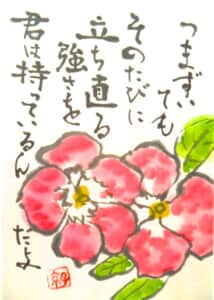 つまずいても
そのたびに
立ち直る
強さを
君は持っているんだよ